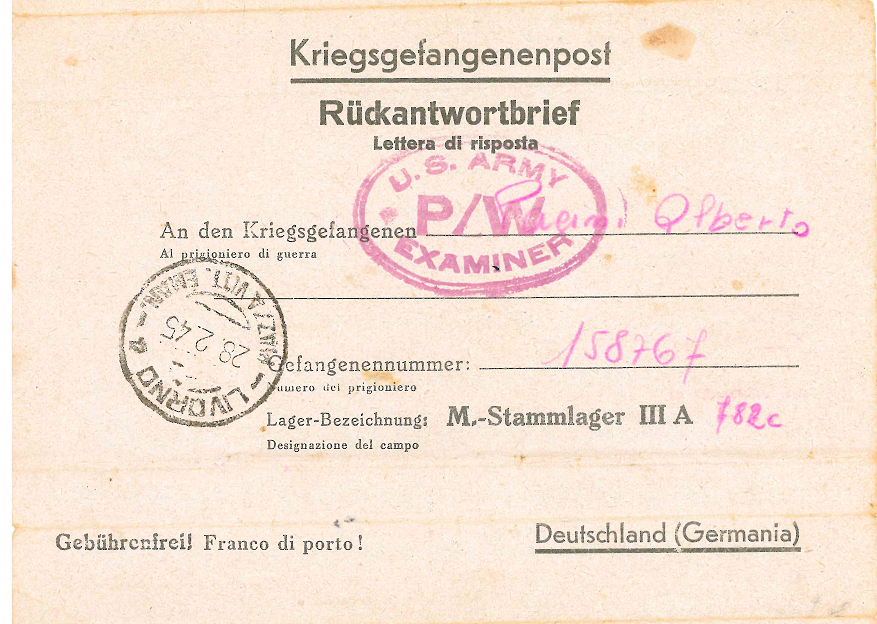 Kriegsgefangenenpost
Rückantwortbrief
Lettera di risposta
U. S. ARMY
P/W
EXAMINER
An den Kriegsgefangenen Alberto
Al prigioniero di guerra
LIVORNO
28.2.45
Gefangenennummer: 158767
Numero del prigioniero
Lager-Bezeichnung: M.-Stammlager III A 782c
Designazione del campo
Gebührenfrei! Franco di porto!
Deutschland (Germania)